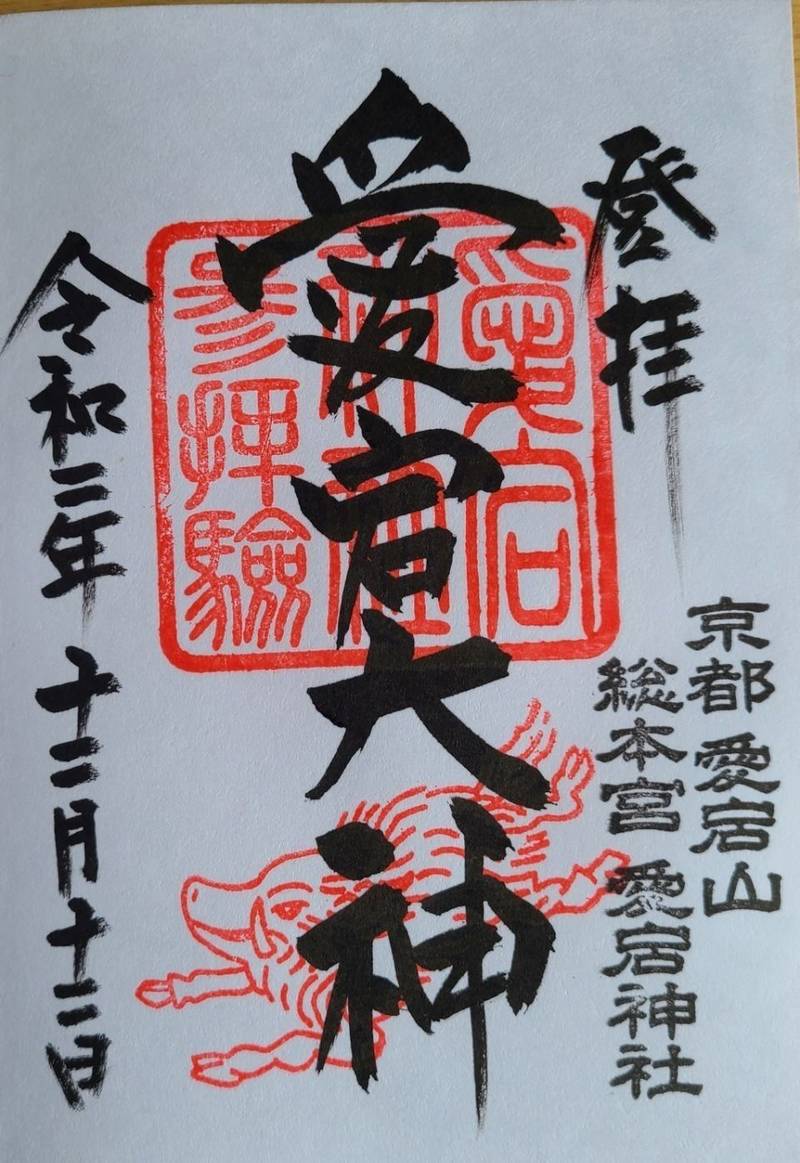 登拝
京都 愛宕山
総本宮 愛宕神社
愛宕大神
愛宕
神社
参拝驗
令和二年 十二月十二日